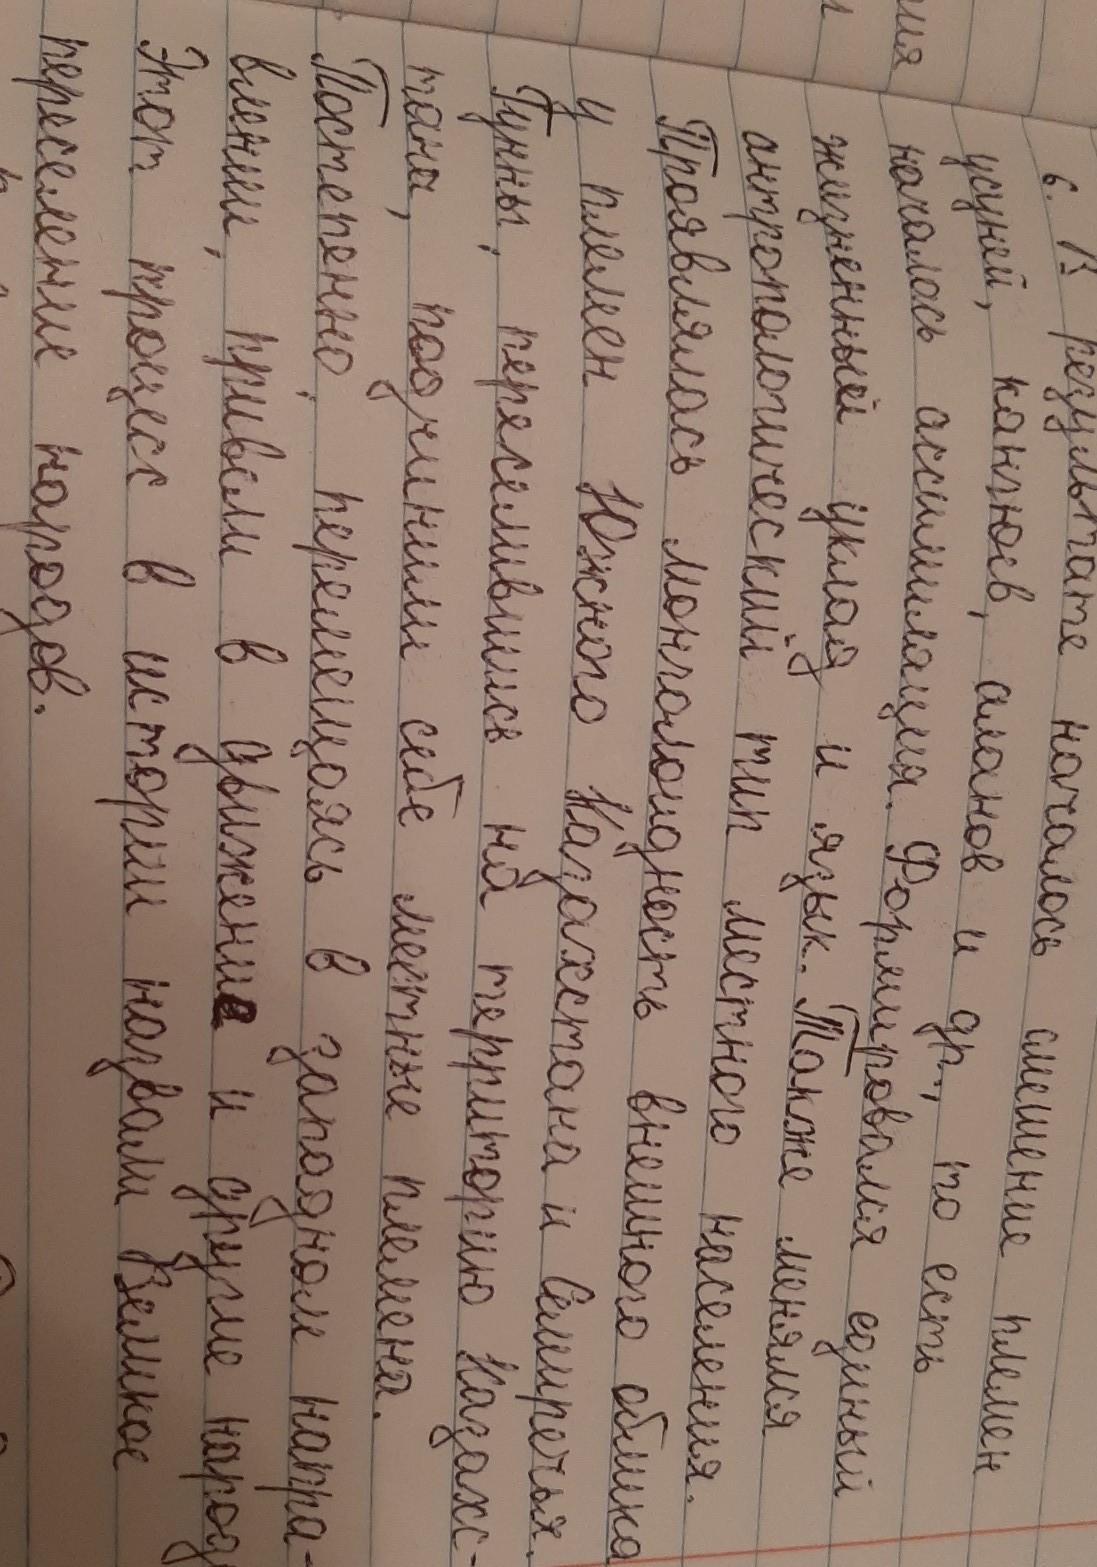 6. В результате началось смешение племен
усуней, канжюев, аланов и др., то есть
началась ассимиляция. Формировался единый
жизненный уклад и язык. Также менялся
антропологический тип местного населения.
Проявлялась монголоидность внешнего облика
у племен Южного Казахстана и Семиречья.
Гунны, переселившись на территорию Казахс-
тана, подчинили себе местные племена.
Постепенно перемещаясь в западном напра-
влении, привели в движение и другие народ
Этот процесс в истории назвали Великое
переселение народов.